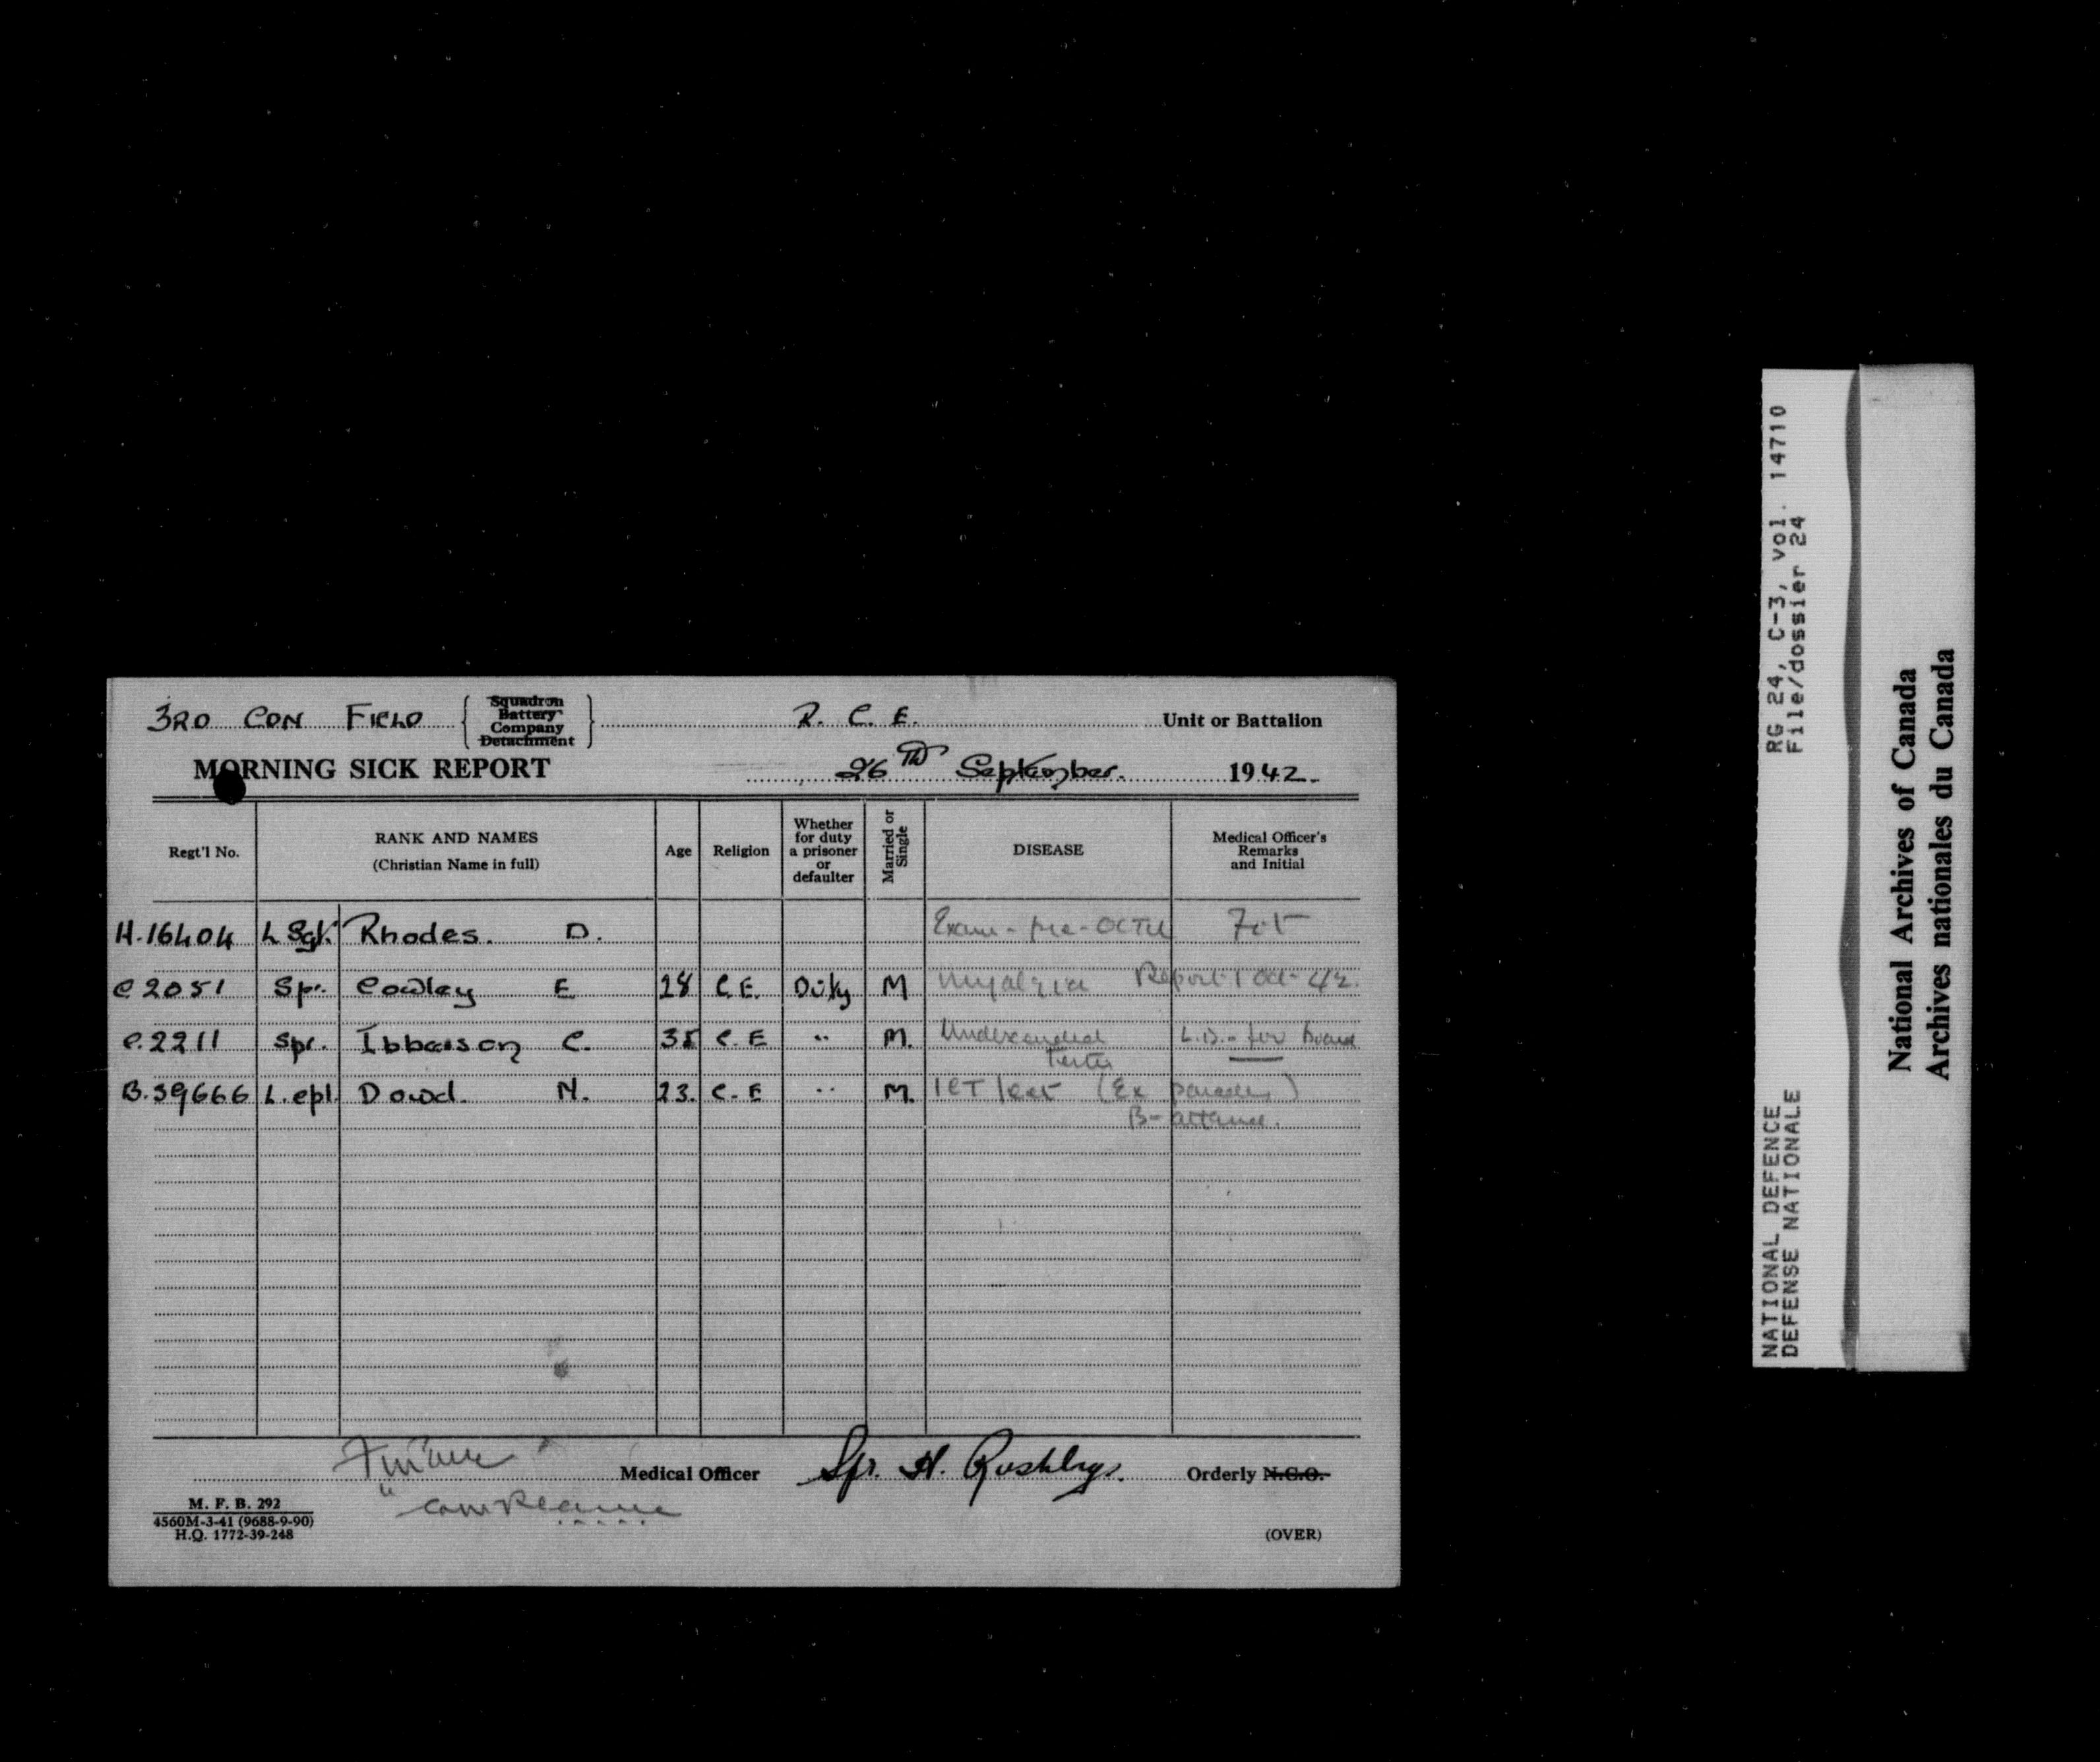 3RD CON FIELD { Squadron Battery Company Detachment } R. C. E. Unit or Battalion
MORNING SICK REPORT 26TH September 1942.
Regt'l No. RANK AND NAMES (Christian Name in full) Age Religion Whether for duty a prisoner or defaulter Married or Single DISEASE Medical Officer's Remarks and Initial
H.16404 L Sgt. Rhodes. D. Exam - pre-OCTU Fit
C 2051 Spr. Cowley E 28 C.E. Duty M Myalgia Report 1 Oct 42.
C.2211 Spr. Ibbeison C. 38 C.E " M. Undescended L.D. - for Board
Testes
B.39666 L.cpl. Dowd. N. 23. C.E " M. (Ex parades)
B-
Medical Officer Spr. H. Rushby. Orderly N.C.O.
M. F. B. 292
4560M-3-41 (9688-9-90)
H.Q. 1772-39-248
(OVER)
RG 24, C-3, vol. 14710
File/dossier 24
NATIONAL DEFENCE
DEFENSE NATIONALE
National Archives of Canada
Archives nationales du Canada